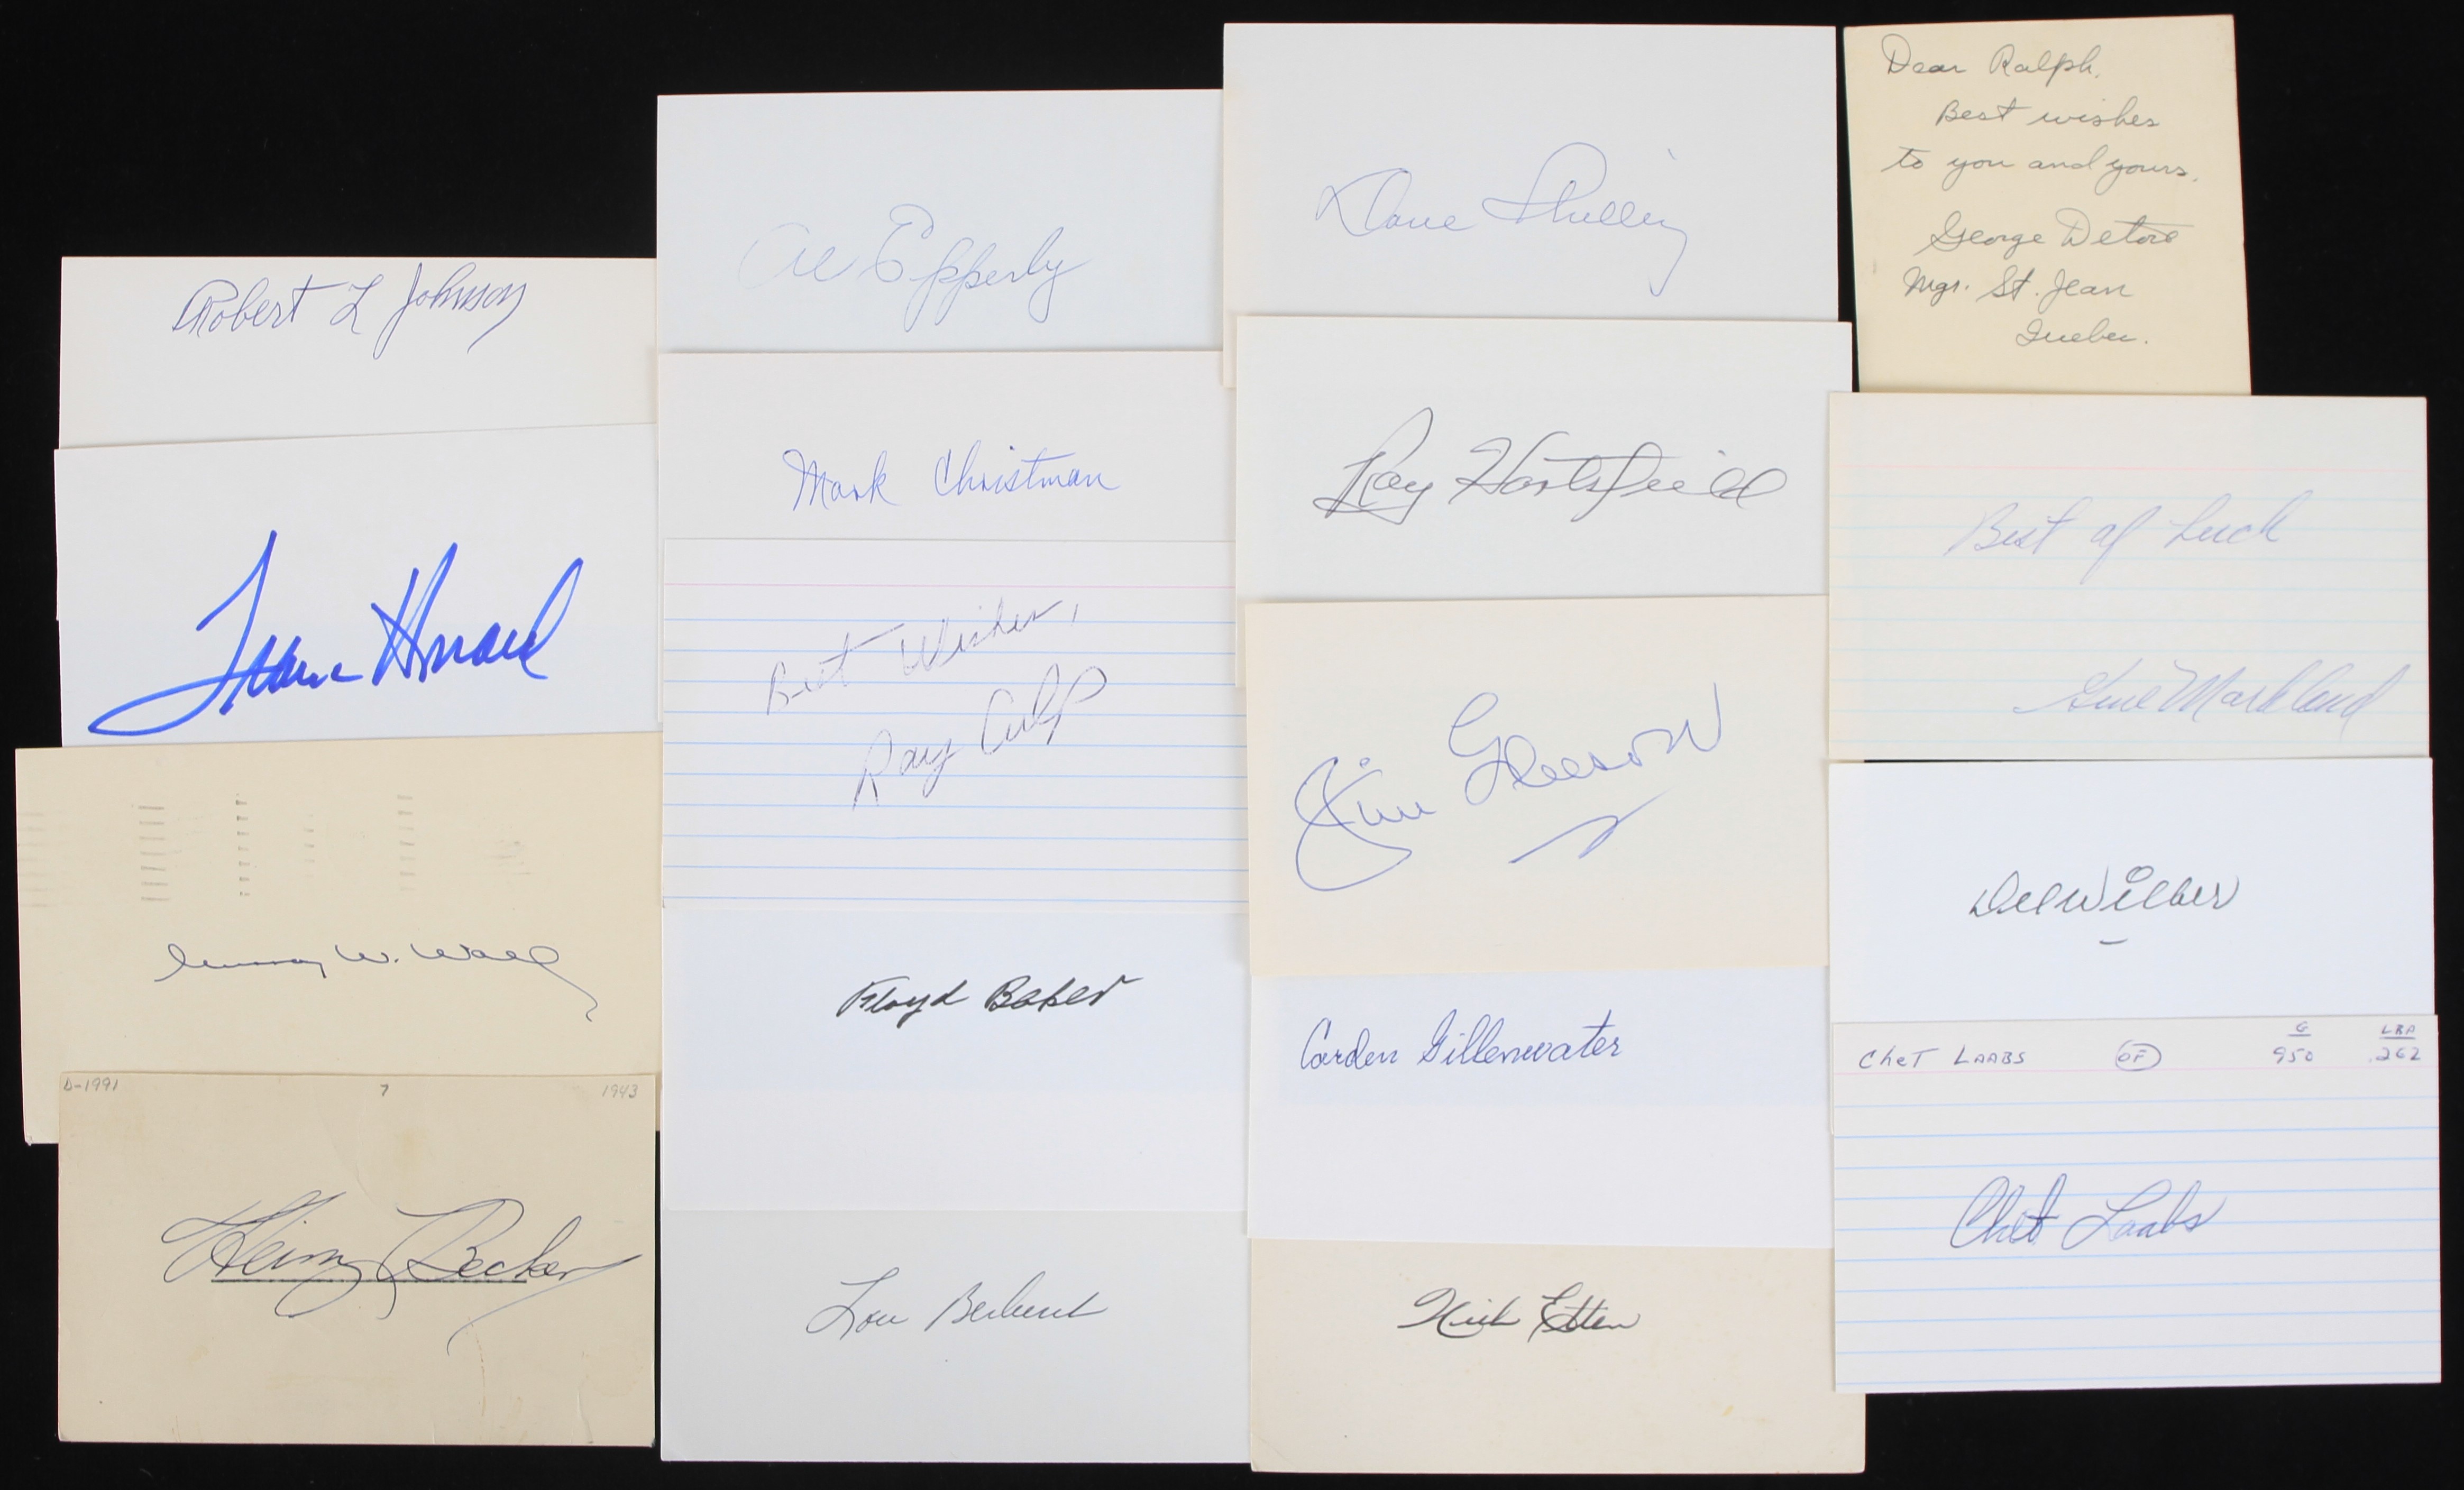 Robert L Johnson
Frank Howard
Murray W. Wall
D-1991 7 1943
Heinz Becker
Al Epperly
Mark Christman
Best Wishes,
Ray Culp
Floyd Baker
Lou Berberet
Dave Philley
Ray Hartsfield
Jim Gleeson
Carden Gillenwater
Nick Etten
Dear Ralph,
Best wishes
to you and yours.
George Detore
Mgr. St. Jean
Quebec.
Best of Luck
Gene Markland
Del Wilber
Chet Laabs OF G 950 LBA .262
Chet Laabs